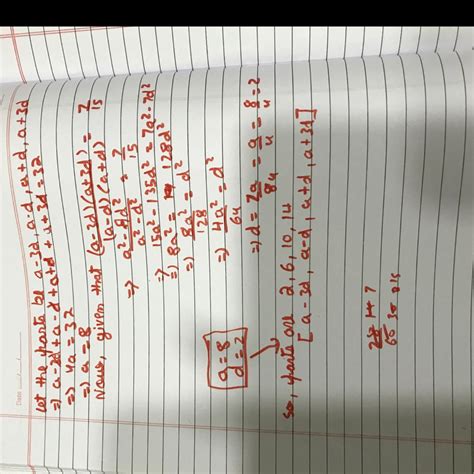 Date
Let the parts be a-3d, a-d, a+d, a+3d
⇒ a-3d+a-d+a+d+a+3d=32
⇒ 4a=32
⇒ a=8
Now, given that (a-3d)(a+3d)/(a-d)(a+d) = 7/15
⇒ a²-9d²/a²-d² = 7/15
⇒ 15a²-135d²=7a²-7d²
⇒ 8a² = 128d²
⇒ 8a²/128 = d²
⇒ 4a²/64 = d²
⇒ d = 2a/8 = a/4 = 8/4 = 2
a=8
d=2
so, parts are 2, 6, 10, 14
[a-3d, a-d, a+d, a+3d]